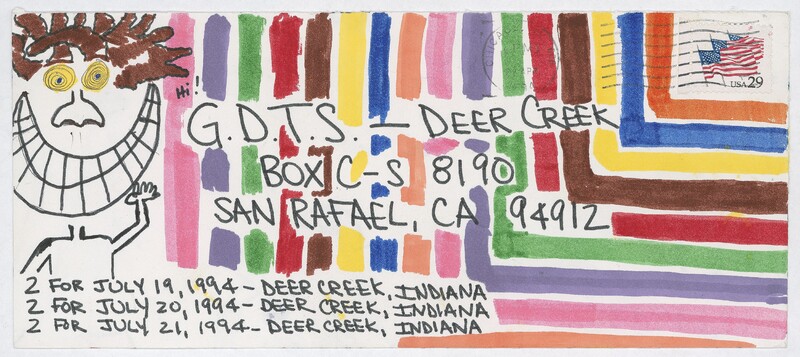 Hi!
USA 29
G.D.T.S. – DEER CREEK
BOX C-S 8190
SAN RAFAEL, CA 94912
2 FOR JULY 19, 1994 – DEER CREEK, INDIANA
2 FOR JULY 20, 1994 – DEER CREEK, INDIANA
2 FOR JULY 21, 1994 – DEER CREEK, INDIANA